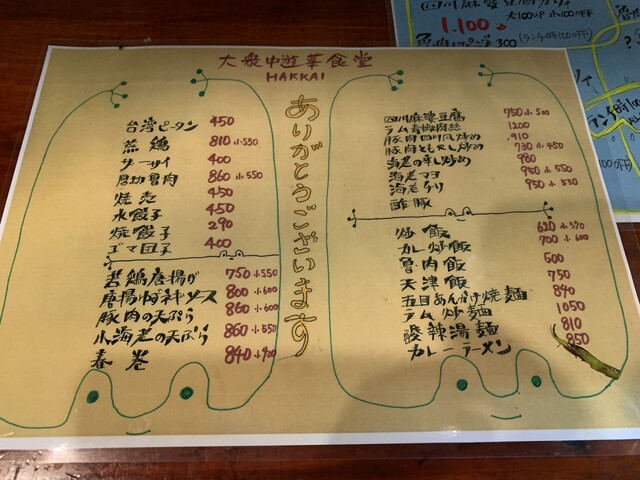 大衆中遊華食堂
HAKKAI
ありがとうございます
台湾ピータン 450
蒸鶏 810 小550
ザーサイ 400
厚切魯肉 860 小550
焼売 450
水餃子 450
焼餃子 290
ゴマ団子 400
若鶏唐揚げ 750 小550
唐揚ゆずネギソース 800 小600
豚肉の天ぷら 860 小600
小海老の天ぷら 860 小550
春巻 840 小420
四川麻婆豆腐 750 小500
ラム青椒肉絲 1200
豚肉四川風炒め 910
豚肉ともやし炒め 730 小450
海老の辛し炒め 980
海老マヨ 950 小550
海老チリ 950 小530
酢豚
炒飯 620 小570
カレー炒飯 700 小600
魯肉飯 500
天津飯 750
五目あんかけ焼麺 840
ラム炒麺 1050
酸辣湯麺 810
カレーラーメン 850
四川麻婆豆腐
1.100
300